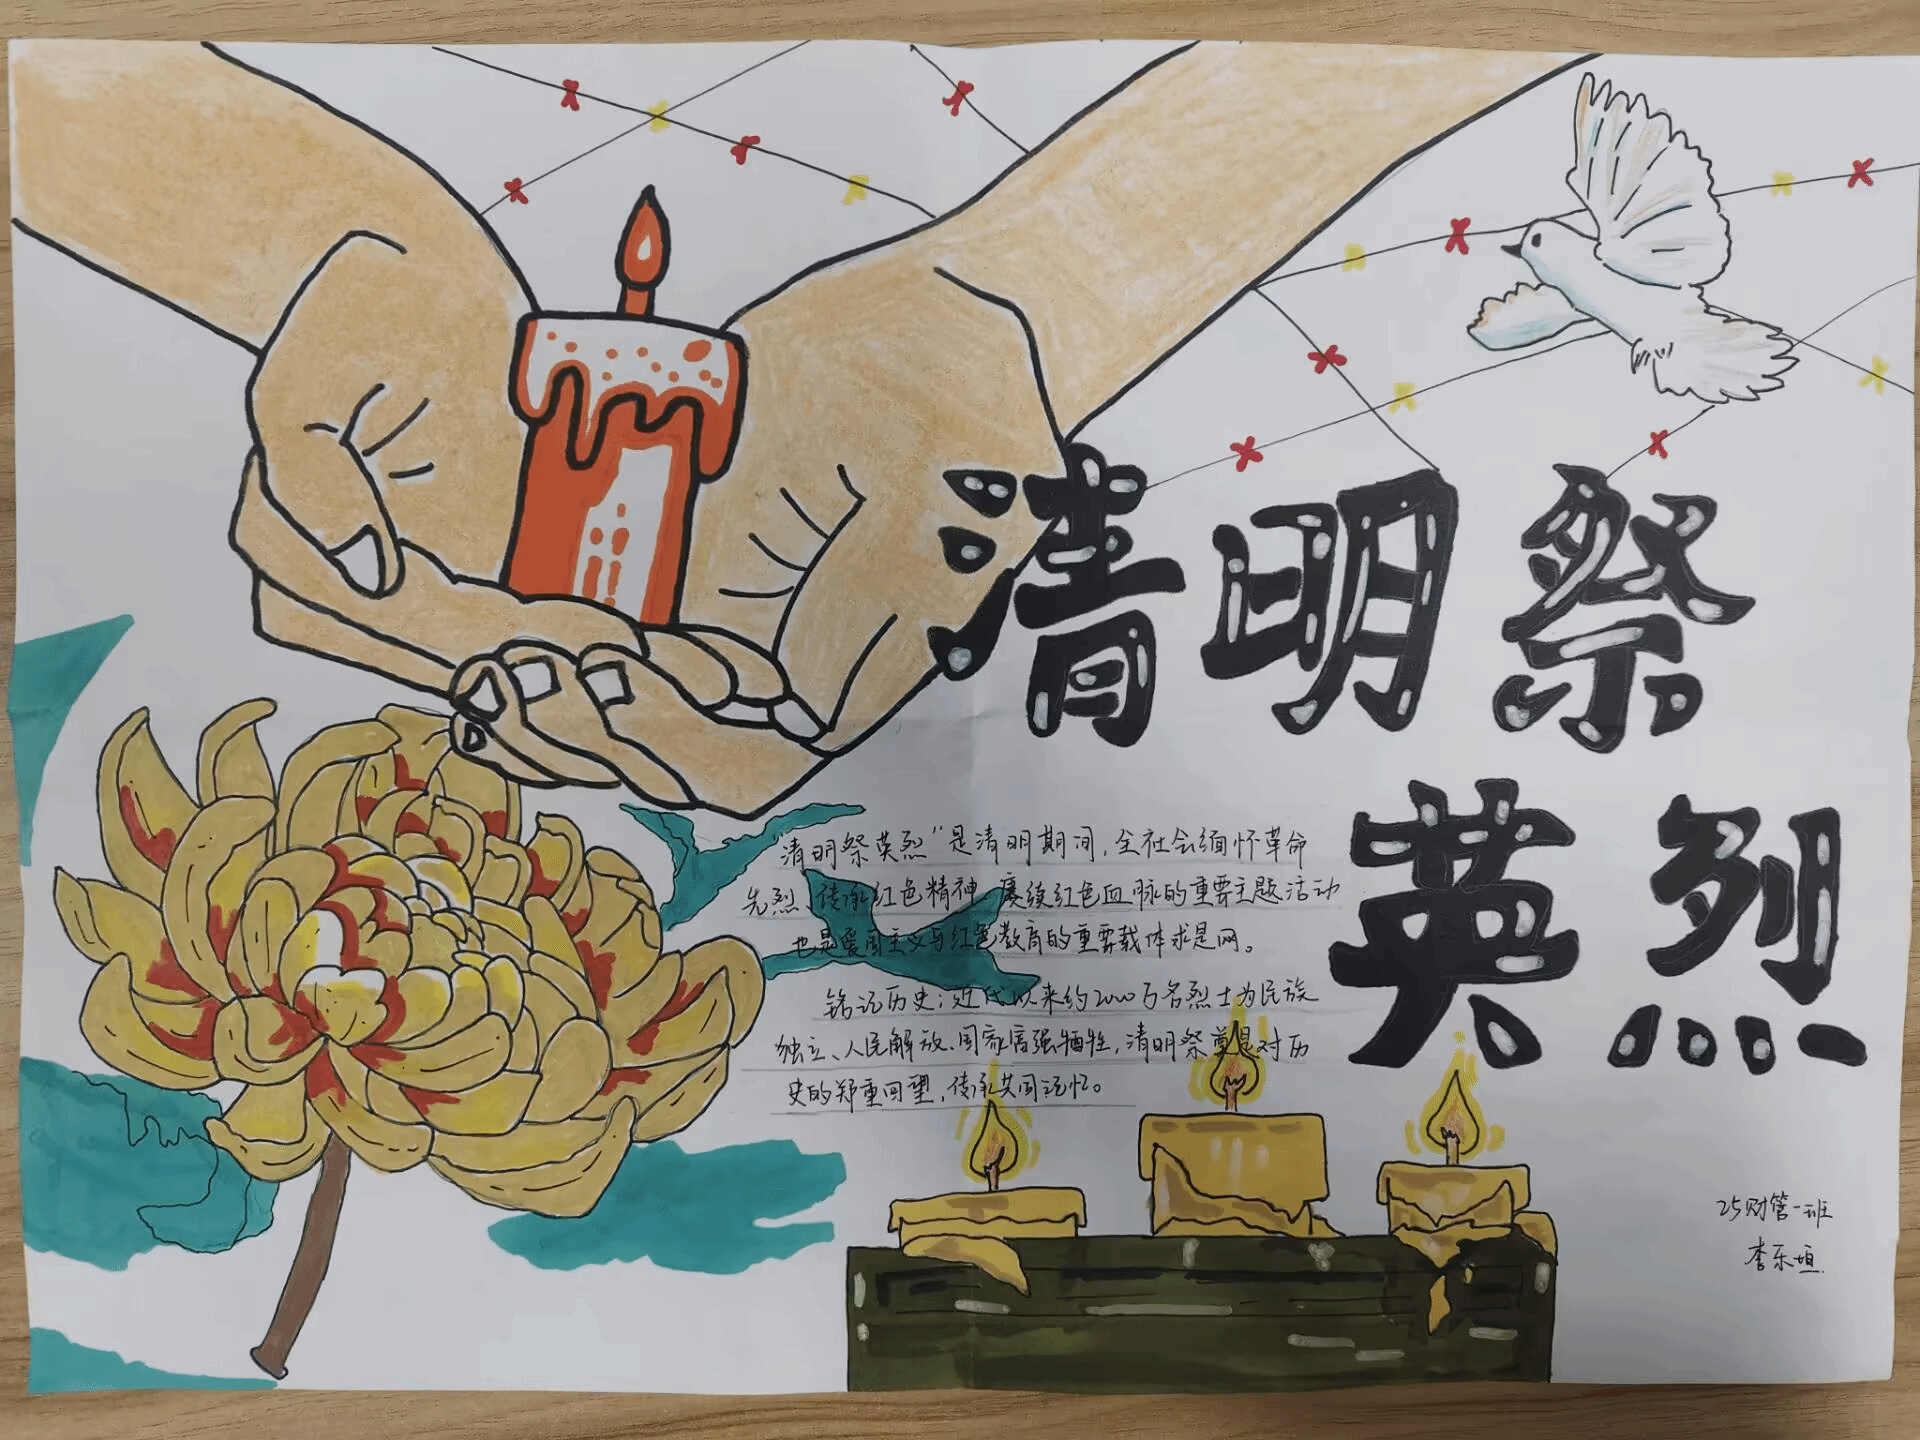 清明祭
英烈
“清明祭英烈”是清明期间，全社会缅怀革命
先烈、传承红色精神、赓续红色血脉的重要主题活动
也是爱国主义与红色教育的重要载体求是网。
铭记历史：近代以来约2000万名烈士为民族
独立、人民解放、国家富强牺牲，清明祭奠是对历
史的郑重回望，传承共同记忆。
25财管一班
李乐垣